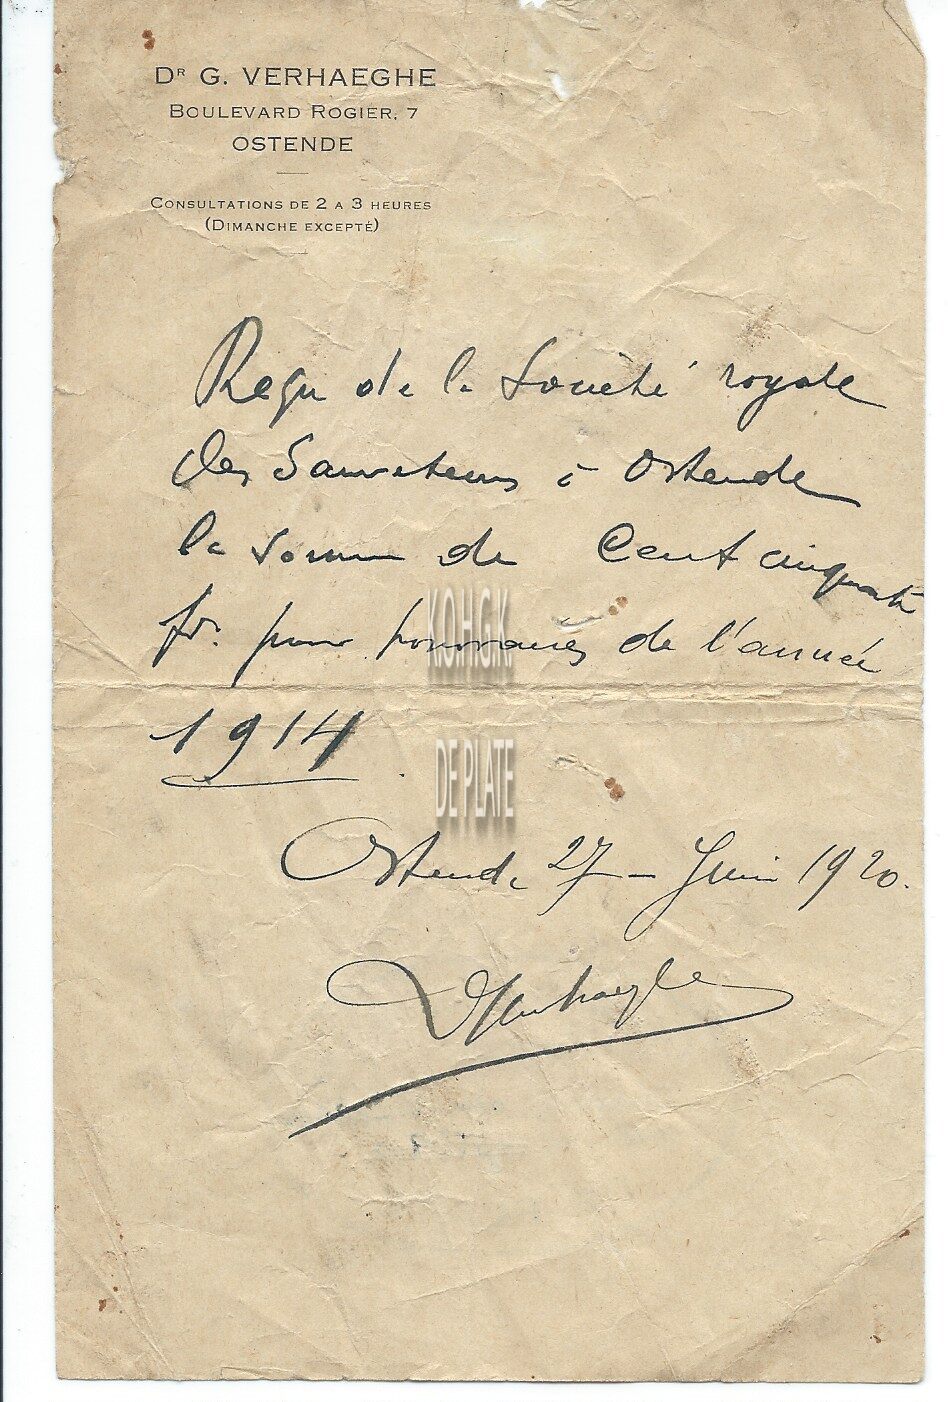 Dr G. VERHAEGHE
BOULEVARD ROGIER, 7
OSTENDE
CONSULTATIONS DE 2 A 3 HEURES
(DIMANCHE EXCEPTÉ)
Reçu de la Société royale
des Sauveteurs à Ostende
la somme de Cent cinquante
frs. pour honoraires de l'année
1914
Ostende 27 - Juin 1920.
DVerhaeghe
KOHGK
DE PLATE